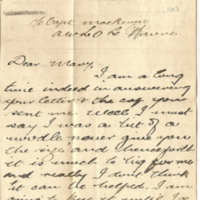 To Capt Mackenzie
Dear Mary,
I am a long
time indeed in answering
your letter & the cap you
sent me. Well I must
say I was a bit of a
noodle never give you
the size and therefore
it is much to big for me
and really I dont think
it can be helped. I am
going to